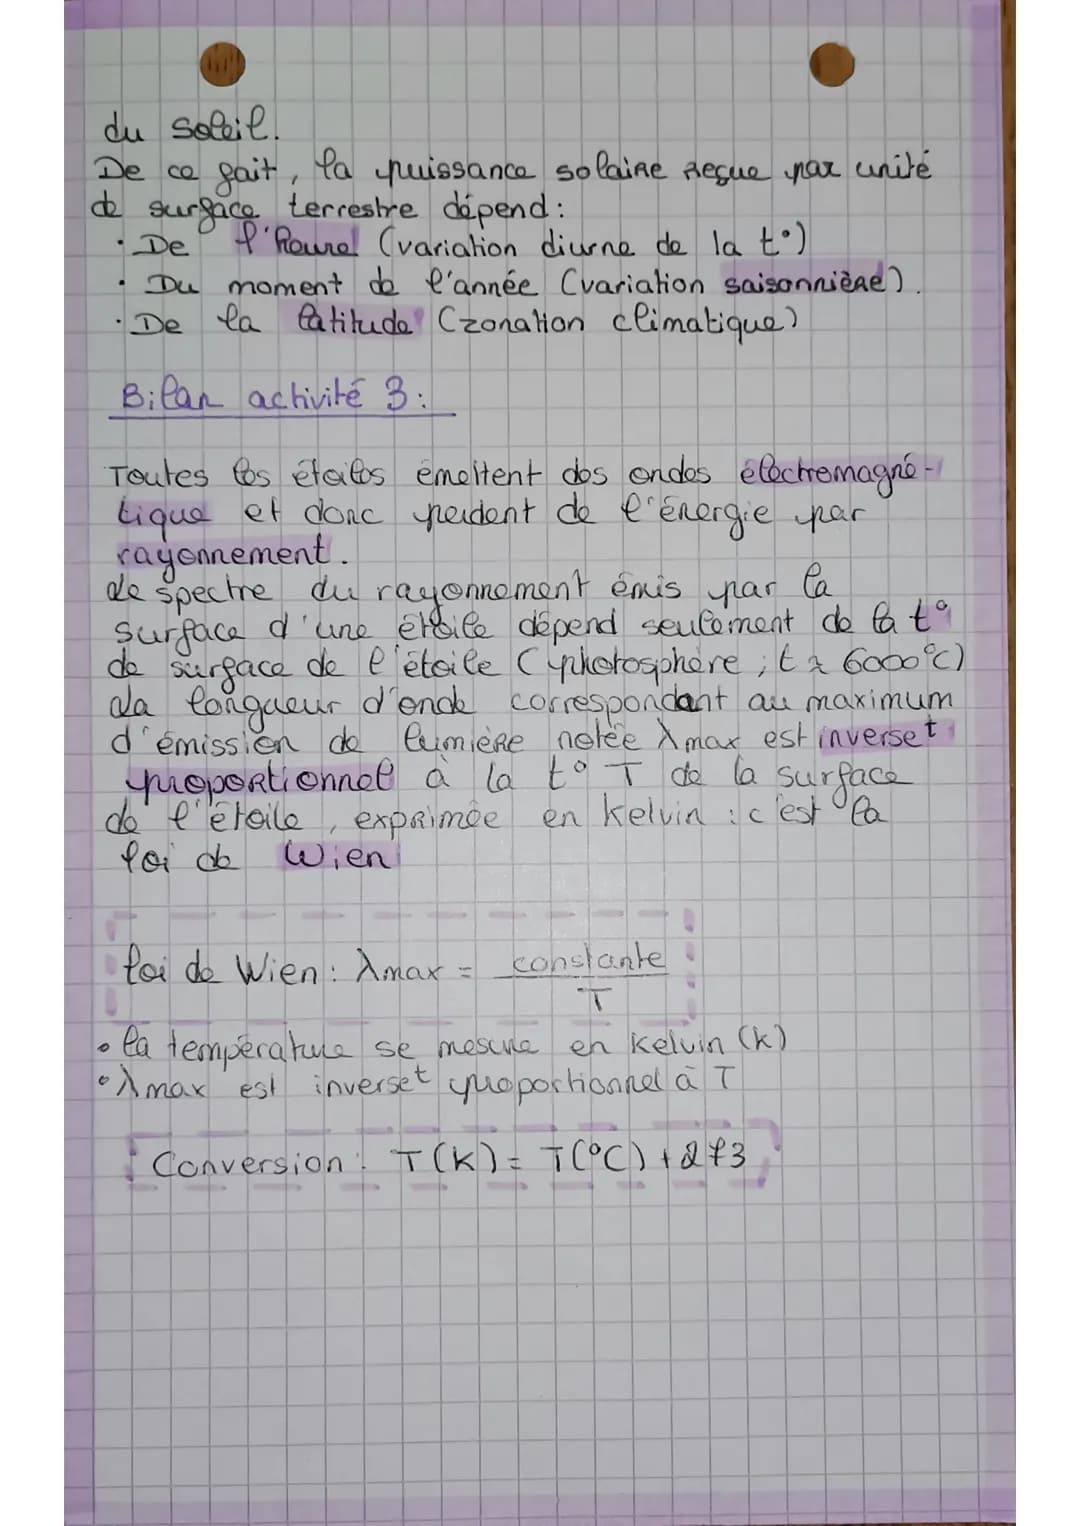 du soleil.
De ce fait, la puissance solaire reçue par unité
de surface terrestre dépend :
• De l'heure (variation diurne de la t°)
• Du moment de l'année (variation saisonnière).
• De la latitude (zonation climatique)
Bilan activité 3 :
Toutes les étoiles émettent des ondes électromagné-
tique et donc perdent de l'énergie par
rayonnement.
Le spectre du rayonnement émis par la
surface d'une étoile dépend seulement de la t°
de surface de l'étoile (photosphère ; t ≈ 6000°C)
La longueur d'onde correspondant au maximum
d'émission de lumière notée λmax est inverset
proportionnel à la t° T de la surface
de l'étoile, exprimée en Kelvin : c'est la
loi de Wien
loi de Wien : λmax = constante
T
• la température se mesure en Kelvin (K)
• λmax est inverset proportionnel à T
Conversion : T(K) = T(°C) + 273